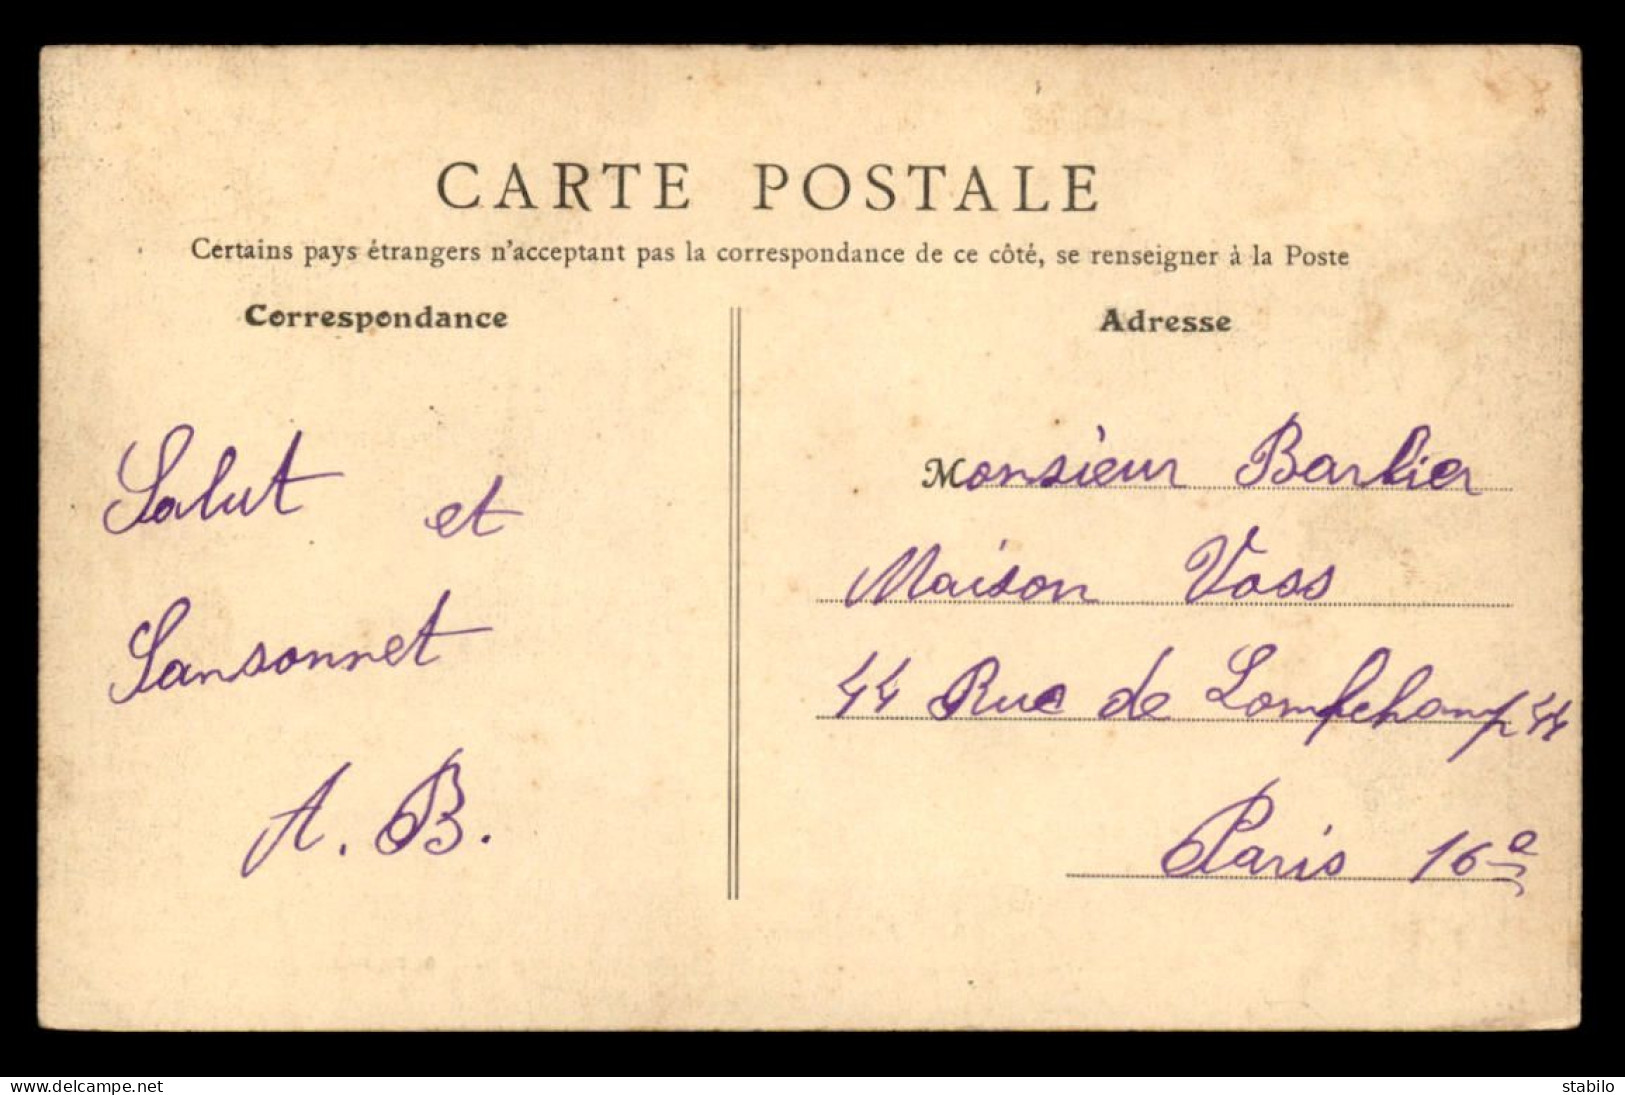 CARTE POSTALE
Certains pays étrangers n'acceptant pas la correspondance de ce côté, se renseigner à la Poste
Correspondance
Salut et
Sansonnet
A. B.
Adresse
Monsieur Barbier
Maison Voss
44 Rue de Lomgchamp 44
Paris 16e
www.delcampe.net
stabilo